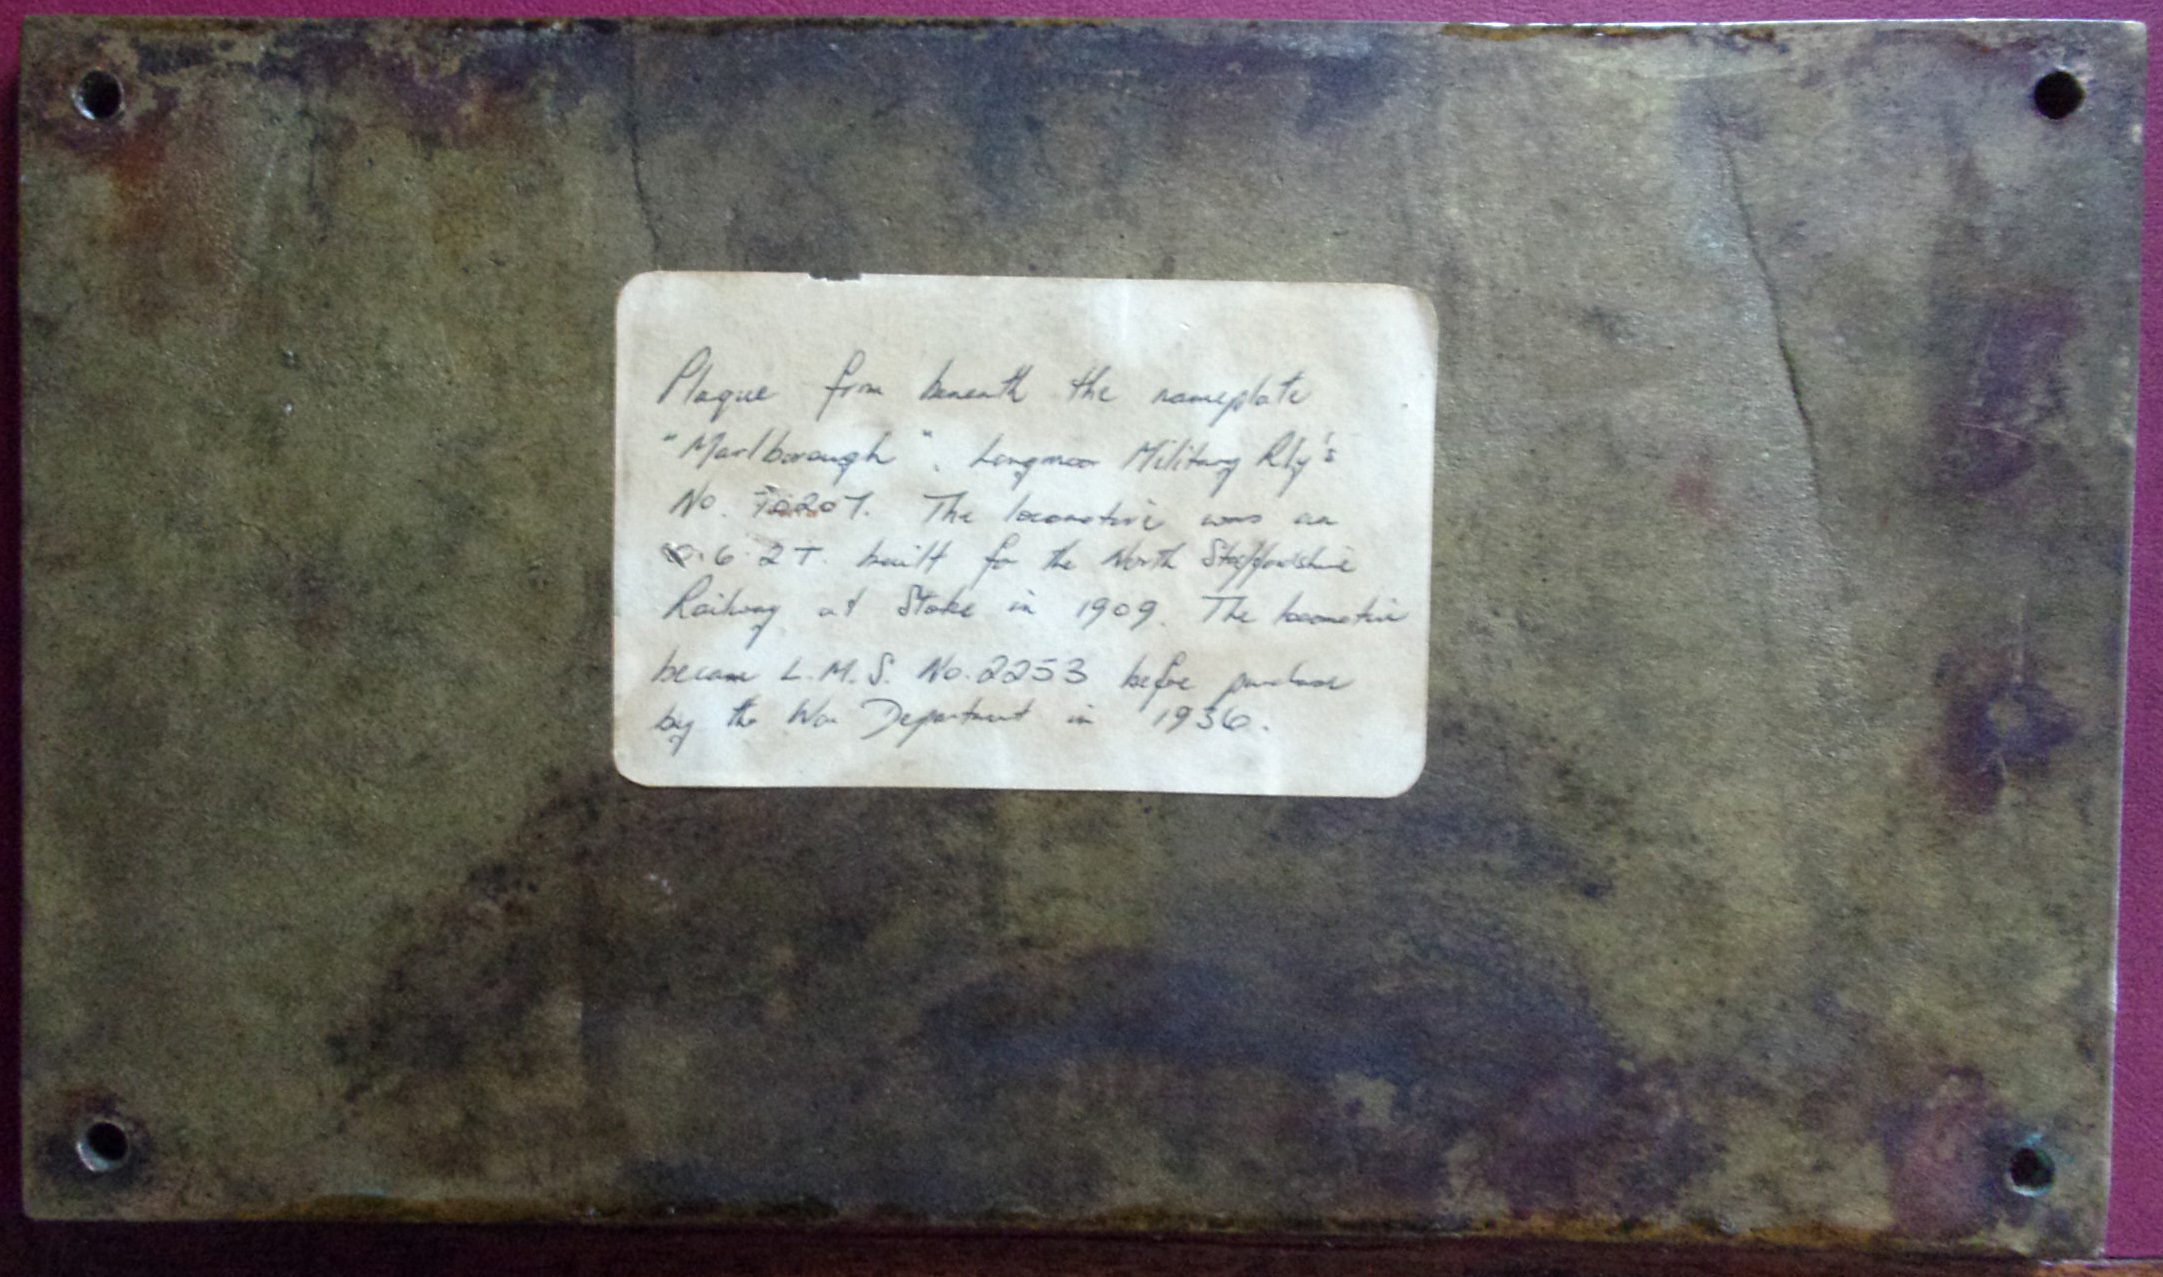 Plaque from beneath the nameplate
"Marlborough". Longmoor Military Rly's
No. 70207. The locomotive was an
0.6.2T. built for the North Staffordshire
Railway at Stoke in 1909. The locomotive
became L.M.S. No. 2253 before purchase
by the War Department in 1936.